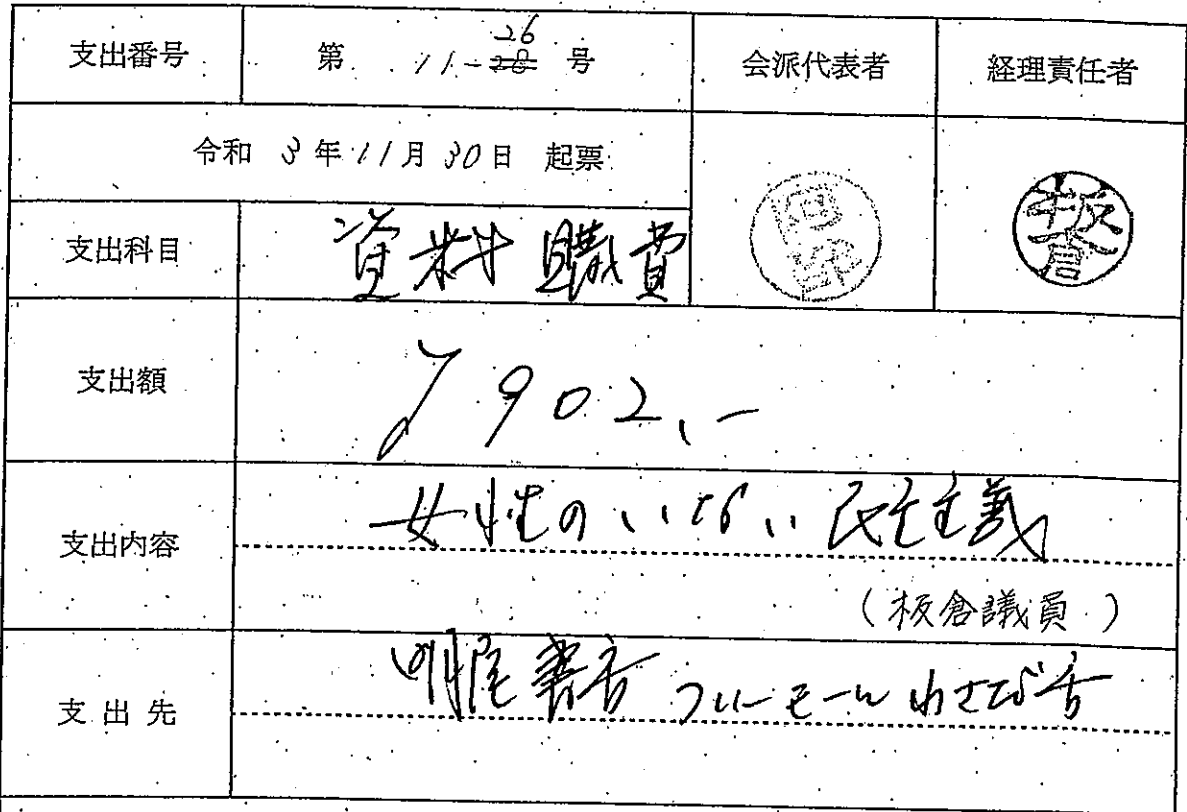 支出番号 第 11-26 28 号 会派代表者 経理責任者
令和 3年 11月 30日 起票
板倉
支出科目 資料購費
支出額 ¥902.-
支出内容 女性のいない民主主義
(板倉議員)
支出先 書店 フルーモール